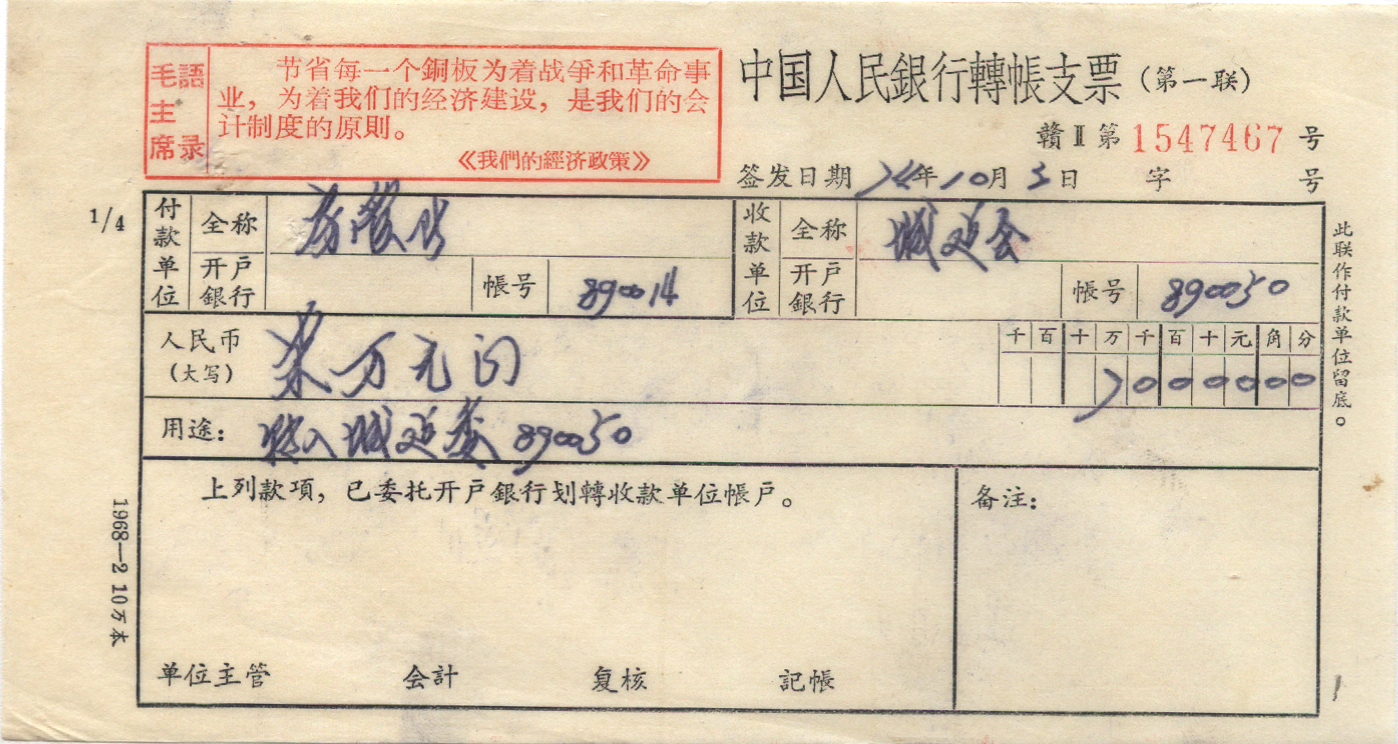 毛主席語录
节省每一个銅板为着战爭和革命事
业，为着我们的经济建设，是我们的会
计制度的原則。
《我們的經济政策》
中国人民銀行轉帳支票（第一联）
贛Ⅱ第1547467号
签发日期 年10月3日 字 号
1/4
付款单位 全称
开户銀行 帳号 890014
收款单位 全称 城建会
开户銀行 帳号 890050
人民币（大写） 柒万元
千百十万千百十元角分
7000000
用途：转入城建委 890050
上列款項，已委托开户銀行划轉收款单位帳户。
备注：
单位主管 会計 复核 記帳
此联作付款单位留底。
1968—2 10万本